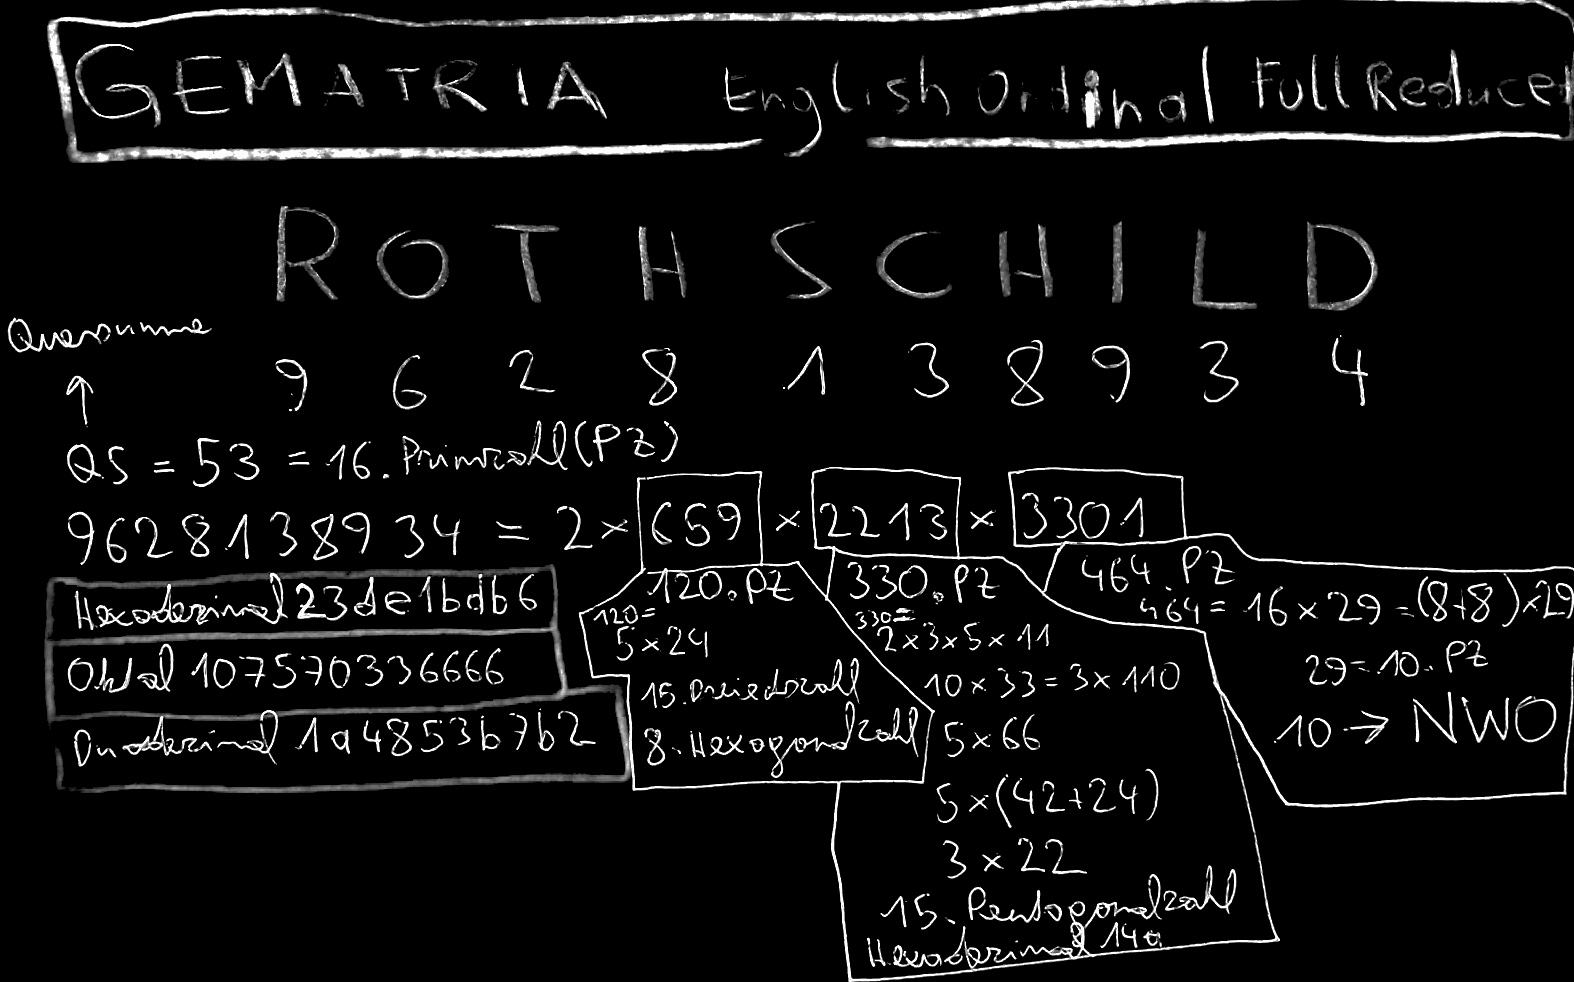 GEMATRIA English Ordinal Full Reduced
ROTHSCHILD
Quersumme
↑
9 6 2 8 1 3 8 9 3 4
QS = 53 = 16. Primzahl (PZ)
9628138934 = 2 × 659 × 2213 × 3301
Hexadezimal 23de1bdb6
Oktal 107570336666
Duodezimal 1a4853b7b2
120. PZ
120=
5 × 24
15. Dreieckszahl
8. Hexagonalzahl
330. PZ
330=
2 × 3 × 5 × 11
10 × 33 = 3 × 110
5 × 66
5 × (42+24)
3 × 22
15. Pentagonalzahl
Hexadezimal 14a
464. PZ
464 = 16 × 29 = (8+8) × 29
29 = 10. PZ
10 → NWO